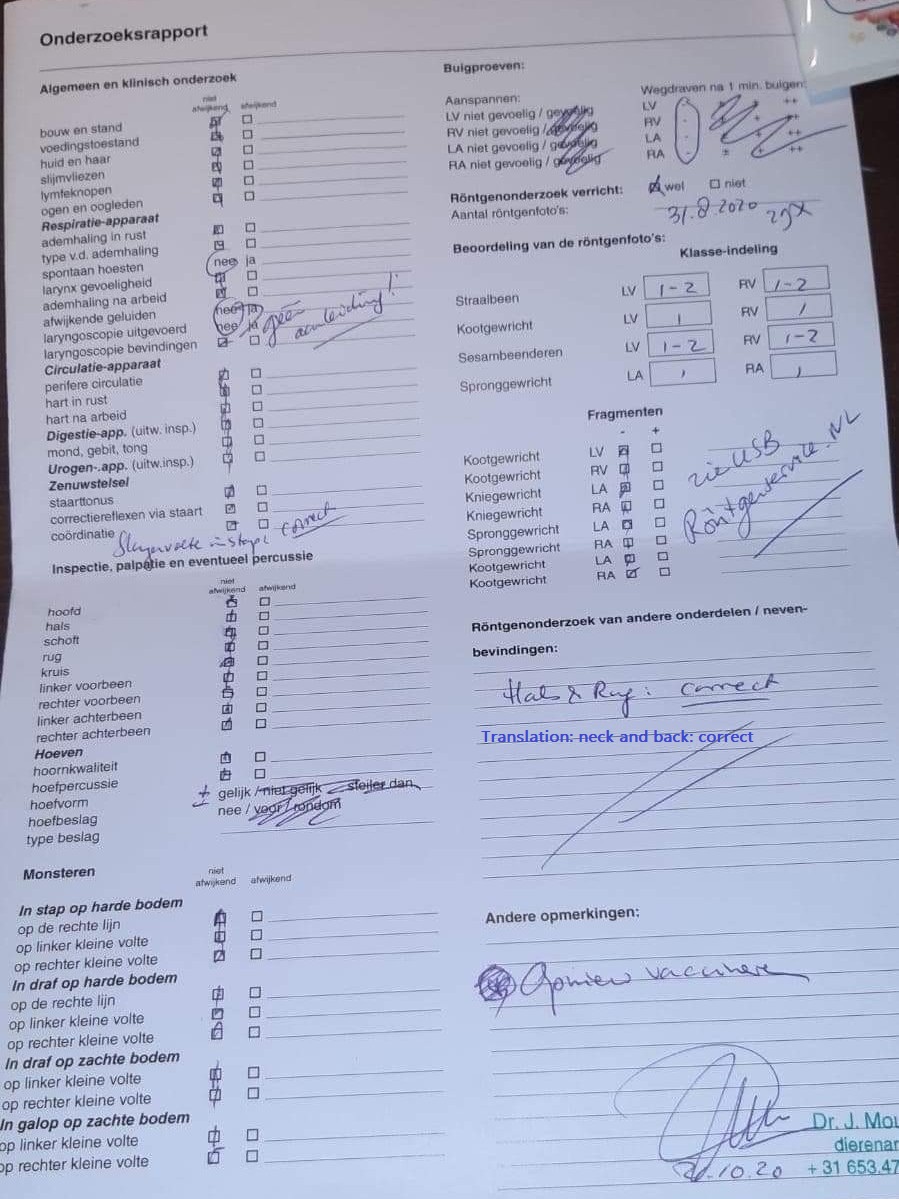 Onderzoeksrapport
Algemeen en klinisch onderzoek
niet afwijkend afwijkend
bouw en stand
voedingstoestand
huid en haar
slijmvliezen
lymfeknopen
ogen en oogleden
Respiratie-apparaat
ademhaling in rust
type v.d. ademhaling
spontaan hoesten nee ja
larynx gevoeligheid
ademhaling na arbeid
afwijkende geluiden nee ja
laryngoscopie uitgevoerd nee ja geen aanleiding!
laryngoscopie bevindingen
Circulatie-apparaat
perifere circulatie
hart in rust
hart na arbeid
Digestie-app. (uitw. insp.)
mond, gebit, tong
Urogen-.app. (uitw.insp.)
Zenuwstelsel
staarttonus
correctiereflexen via staart
coördinatie
Slangenvolte in stap: correct
Inspectie, palpatie en eventueel percussie
niet afwijkend afwijkend
hoofd
hals
schoft
rug
kruis
linker voorbeen
rechter voorbeen
linker achterbeen
rechter achterbeen
Hoeven
hoornkwaliteit
hoefpercussie
hoefvorm ± gelijk / niet gelijk steiler dan
hoefbeslag nee / voor / rondom
type beslag
Monsteren
niet afwijkend afwijkend
In stap op harde bodem
op de rechte lijn
op linker kleine volte
op rechter kleine volte
In draf op harde bodem
op de rechte lijn
op linker kleine volte
op rechter kleine volte
In draf op zachte bodem
op linker kleine volte
op rechter kleine volte
In galop op zachte bodem
op linker kleine volte
op rechter kleine volte
Buigproeven:
Aanspannen: Wegdraven na 1 min. buigen:
LV niet gevoelig / gevoelig LV - ± + ++
RV niet gevoelig / gevoelig RV - ± + ++
LA niet gevoelig / gevoelig LA - ± + ++
RA niet gevoelig / gevoelig RA - ± + ++
Röntgenonderzoek verricht: wel niet
Aantal röntgenfoto's: 31.8 2020
Beoordeling van de röntgenfoto's:
Klasse-indeling
Straalbeen LV 1-2 RV 1-2
Kootgewricht LV 1 RV 1
Sesambeenderen LV 1-2 RV 1-2
Spronggewricht LA 1 RA 1
Fragmenten
- +
Kootgewricht LV
Kootgewricht RV
Kniegewricht LA
Kniegewricht RA
Spronggewricht LA
Spronggewricht RA
Kootgewricht LA
Kootgewricht RA
zie USB
Röntgenservice.NL
Röntgenonderzoek van andere onderdelen / neven-
bevindingen:
Hals & Rug: correct
Translation: neck and back: correct
Andere opmerkingen:
Opnieuw vaccineren
Dr. J. Mou
dierenar
.10.20 + 31 653.47